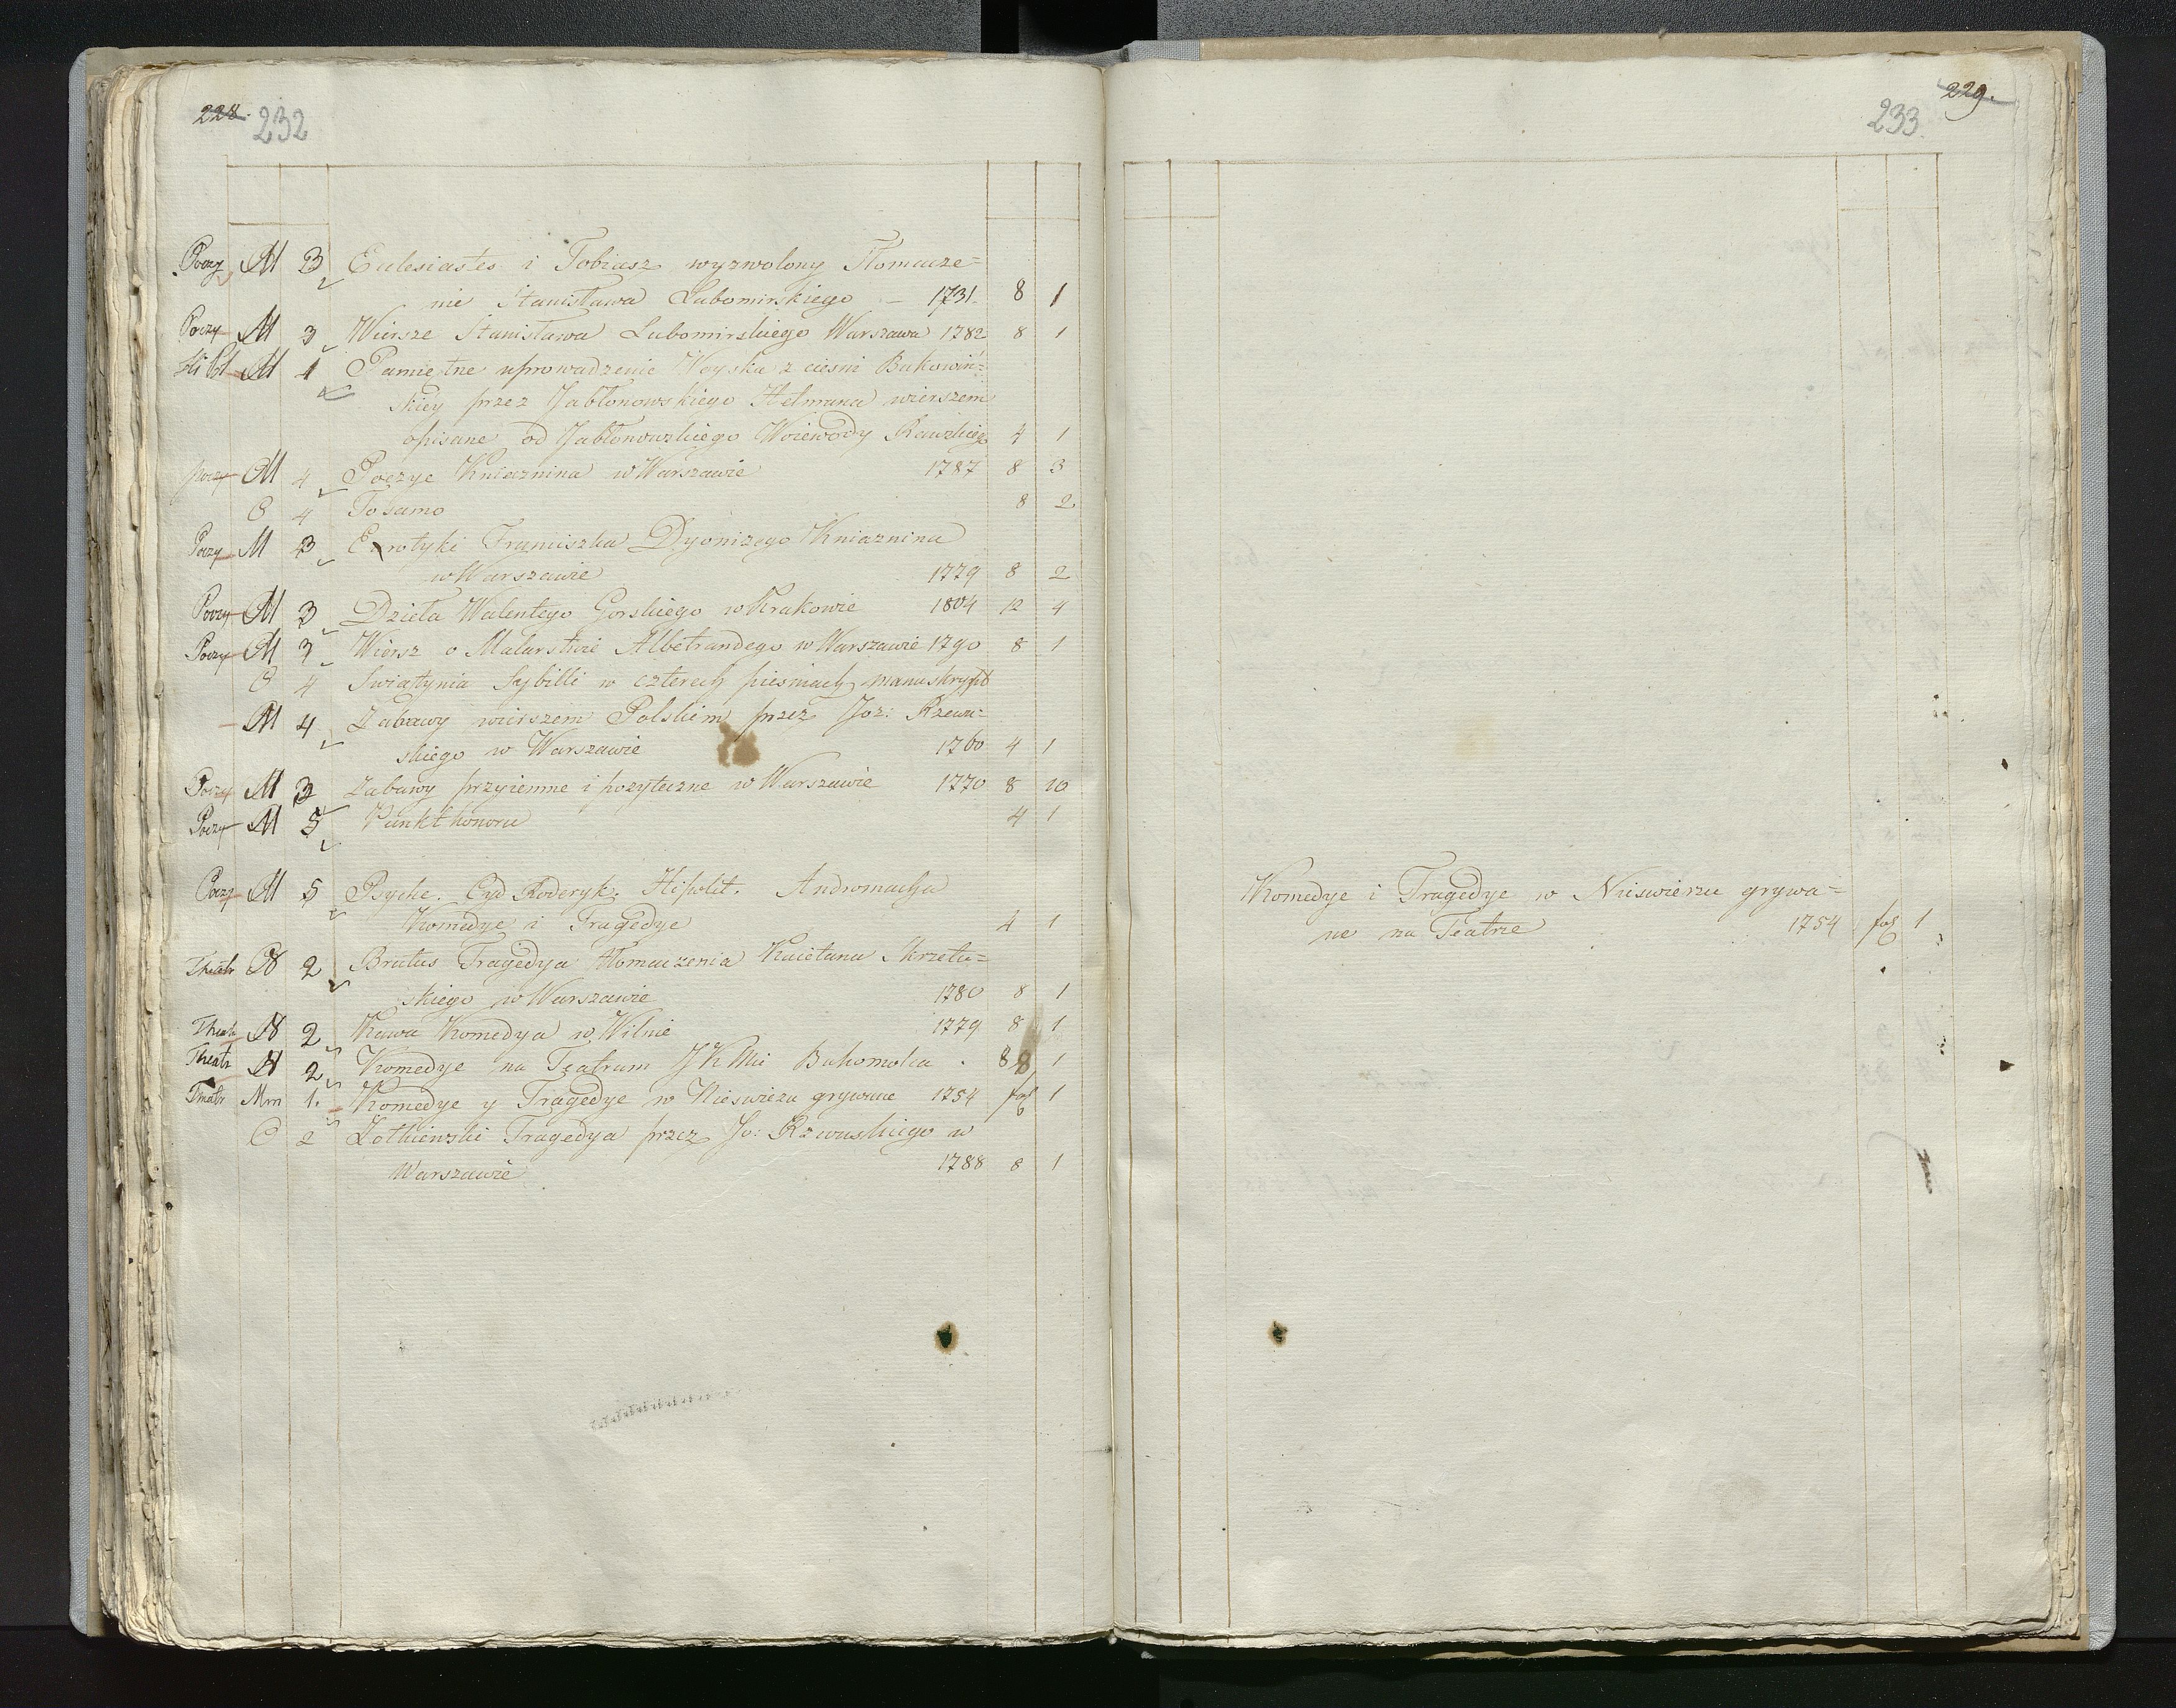 228. 232
Poezy M 3 Eclesiastes i Tobiasz wyzwolony Tłomacze=
nie Stanisława Lubomirskiego – 1731 8 1
Poezy M 3 Wiersze Stanisława Lubomirskiego Warszawa 1782 8 1
M 4 Pamiętne uprowadzenie Woyska z cieśni Bukowiń=
skiey przez Jabłonowskiego Hetmana wierszem
opisane od Jabłonowskiego Woiewody Rawskiego 4 1
poezy M 4 Poezye Kniaznina w Warszawie 1787 8 3
C 4 To samo 8 2
Poezy M 3 Erotyki Franciszka Dyonizego Kniaznina
w Warszawie 1779 8 2
Poezy M 3 Dzieła Walentego Gorskiego w Krakowie 1804 12 4
Poezy M 3 Wiersz o Malarstwie Albetrandego w Warszawie 1790 8 1
C 4 Swiątynia Sybilli w czterech piesniach manuskrypt
M 4 Zabawy wierszem Polskim przez Joz: Rzewu=
skiego w Warszawie 1760 4 1
Poezy M 3 Zabawy przyiemne i pozyteczne w Warszawie 1770 8 10
Poezy M 5 Punkt honoru 4 1
Poezy M 5 Psyche. Cyd. Roderyk. Hipolit. Andromacha
Komedye i Tragedye 4 1
Theatr N 2 Brutus Tragedya tłomaczenia Kaietana Skrzetu=
skiego w Warszawie 1780 8 1
Theatr N 2 Kawa Komedya w Wilnie 1779 8 1
Theatr N 2 Komedye na Teatrum JKMci Bohomolca . 8 8 1
Theatr Mm 1. Komedye y Tragedye w Nieswiezu grywane 1754 fol 1
C 2 Zołkiewski Tragedya przez Jo: Rzewuskiego w
Warszawie 1788 8 1
233 229.
Komedye i Tragedye w Nieswiezu grywa=
ne na Teatrze 1754 fol 1